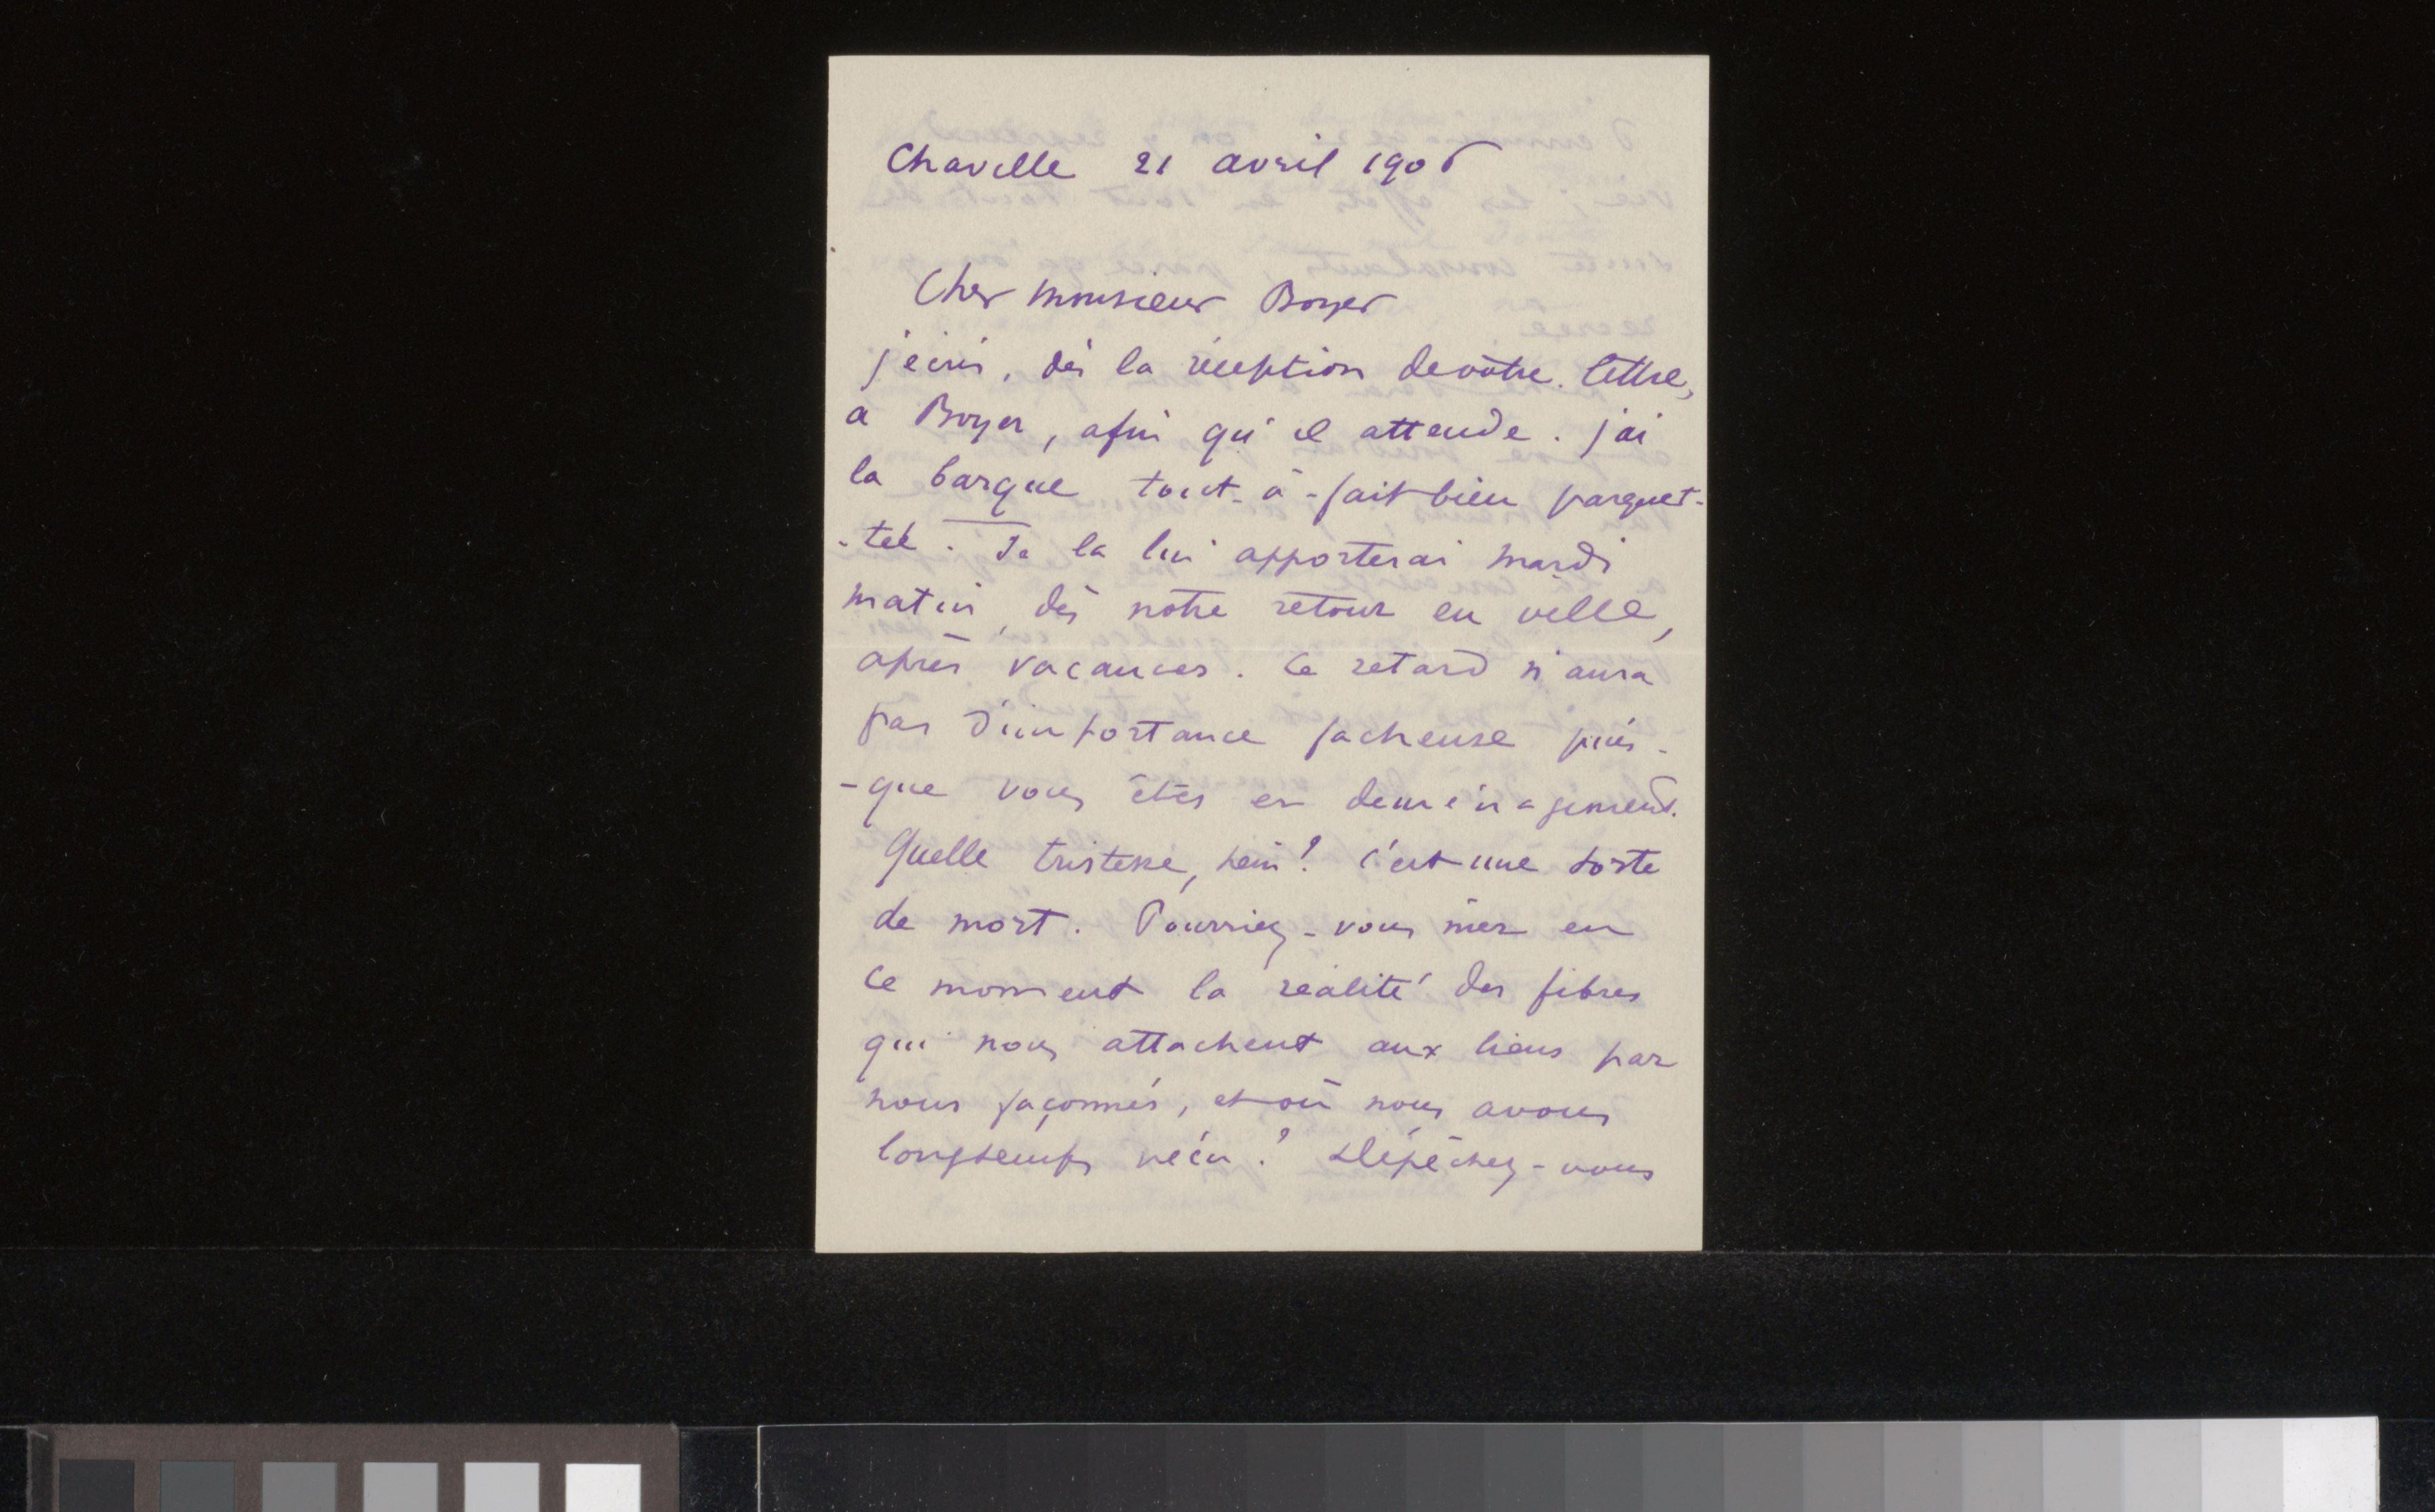 Chaville 21 avril 1906
Cher monsieur Bonger
j'écris, dès la réception de vôtre lettre,
a Boyer, afin qu'il attende. j'ai
la barque tout-à-fait bien parquet-
-tée. Je la lui apporterai mardi
matin, dès notre retour en ville,
après vacances. Ce retard n'aura
pas d'importance facheuse puis-
-que vous êtes en deménagement.
Quelle tristesse, hein! C'est une sorte
de mort. Pourriez-vous nier en
ce moment la réalité des fibres
qui nous attachent aux lieux par
nous façonnés, et où nous avons
longtemps vécu? Dépêchez-vous